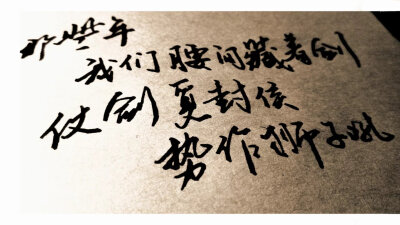 那些年
我们腰间藏着剑
仗剑觅封侯
势作狮子吼